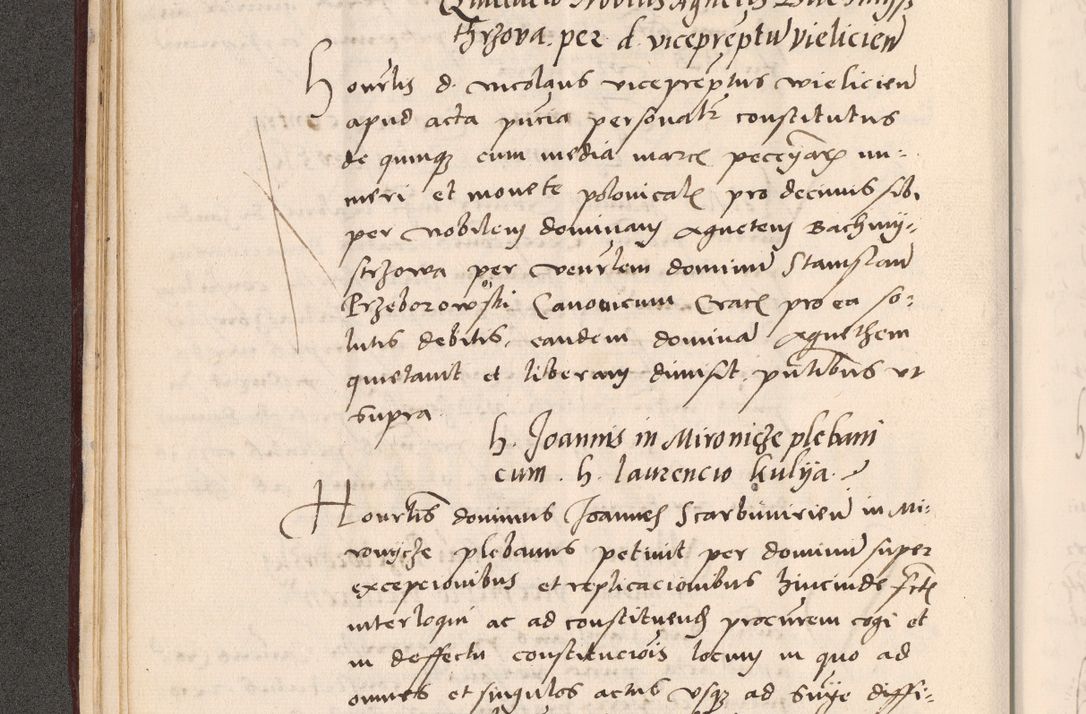 Quietacio Nobilis Agnetis
thrzova. per d. vicepreptu vielicien
Honrlis d. nicolaus vicepreptus wielicien
apud acta pncia personalr constitutus
de quinqz cum media marc nu-
meri et monete polonicalr pro decimis sibi
per nobilem dominam Agnetem Bachmy-
strzowa per venrlem dominu Stanislau
Przeborowski Canonicum Crac pro ea so-
lutis debitis, eandem domina Agnethem
quietavit et liberam dimisit, pntibus ut
supra
h. Joannis in Mironicze plebani
cum. h. laurencio kulya.
Honrlis dominus Joannes Scarbimirien in Mi-
ronycze plebanus petivit per dominu super
excepcionibus et replicacionibus hincinde fcis
interloqui ac ad constituend procurem cogi et
in deffectu constituciois locum in quo ad
omnes et singulos actus usqz ad diffi-